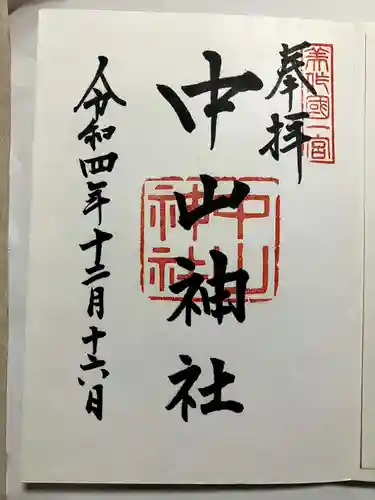 美作國一宮
奉拝
中山神社
中山神社
令和四年十二月十六日